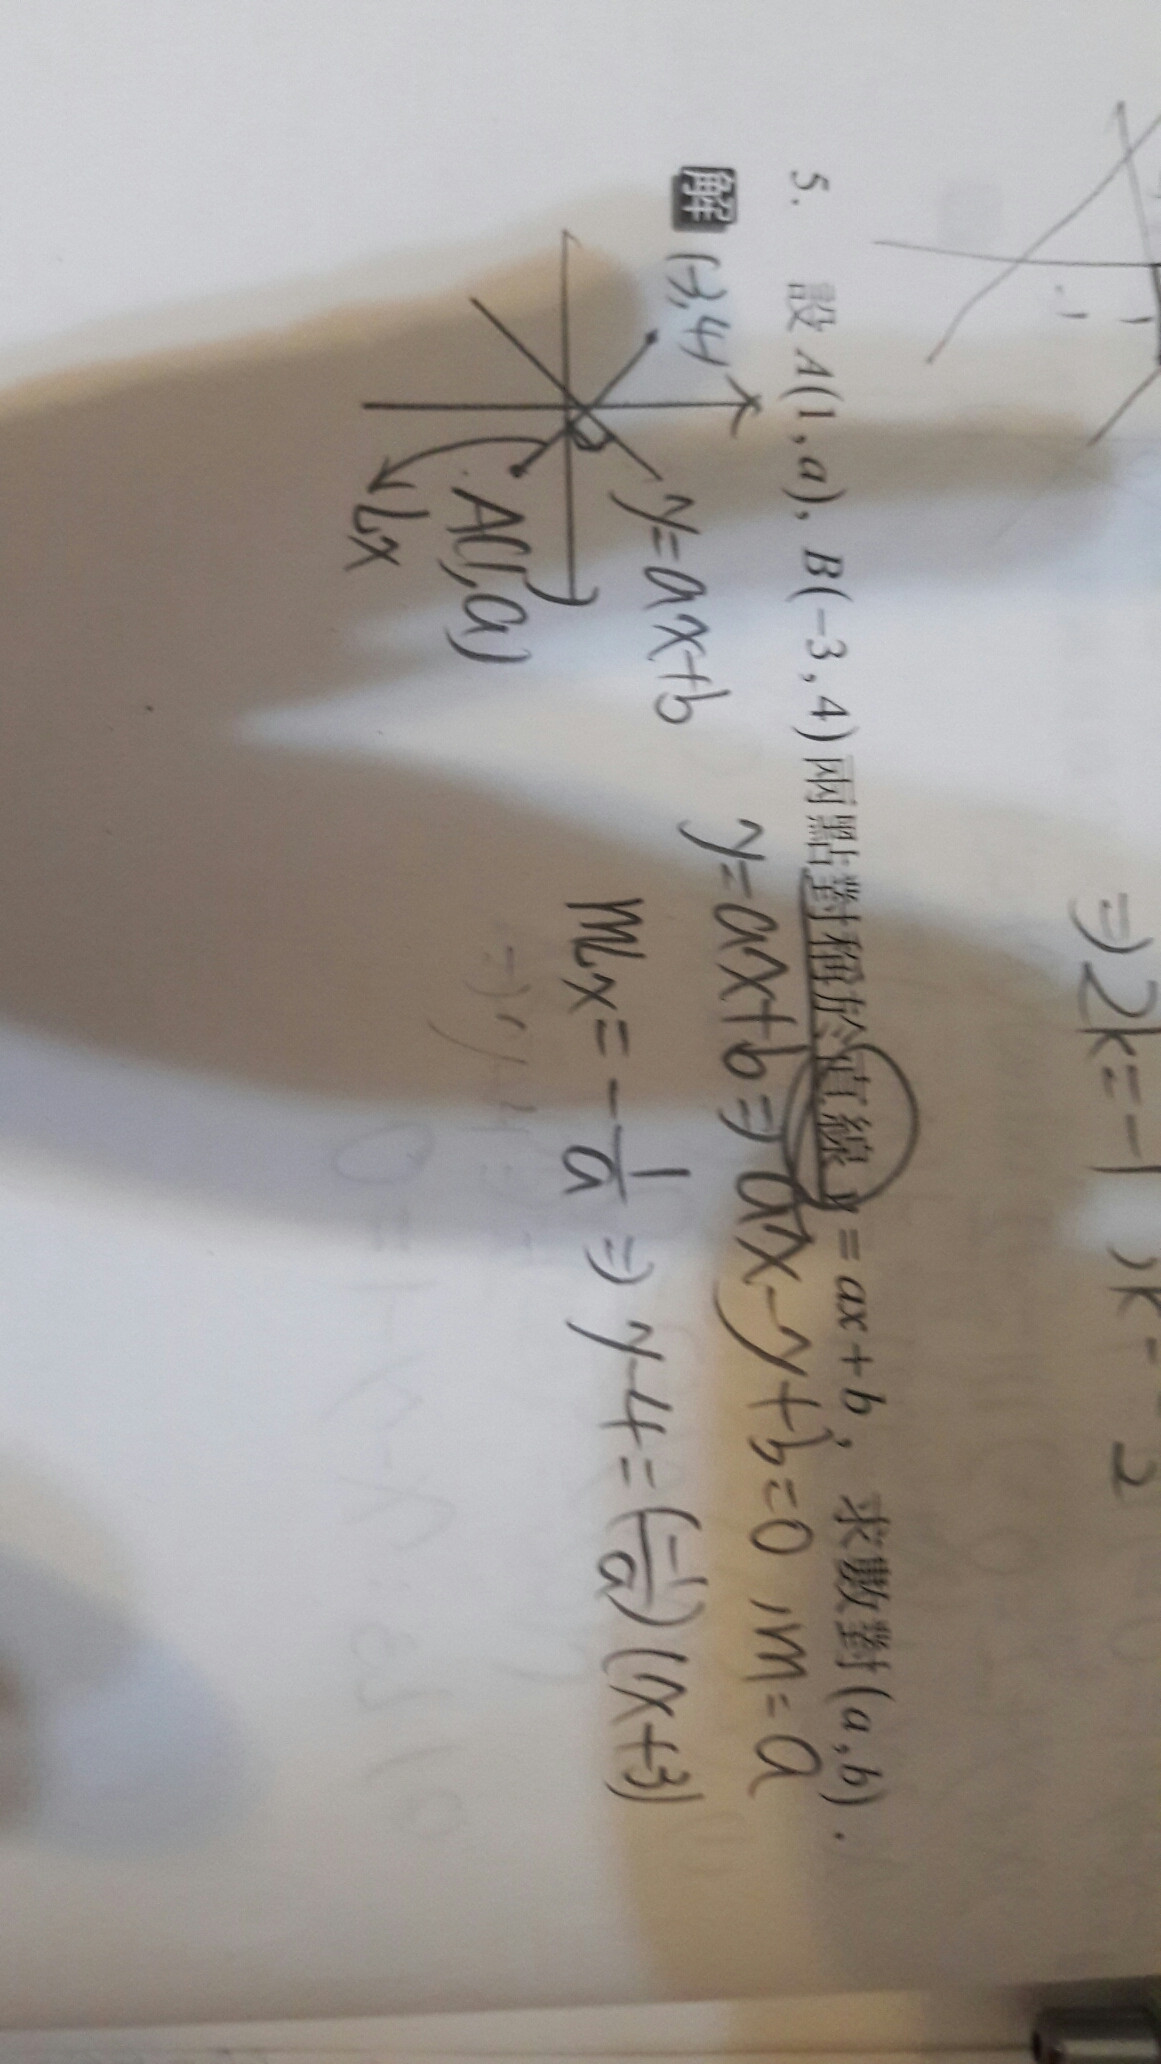 ⇒2k=-1
5. 設 A(1,a), B(-3,4) 兩點對稱於直線 y=ax+b, 求數對(a,b).
解 (-3,4)
y=ax+b
A(1,a)
Lx
y=ax+b⇒ax-y+b=0, m=a
mx=-1/a⇒y-4=(-1/a)(x+3)